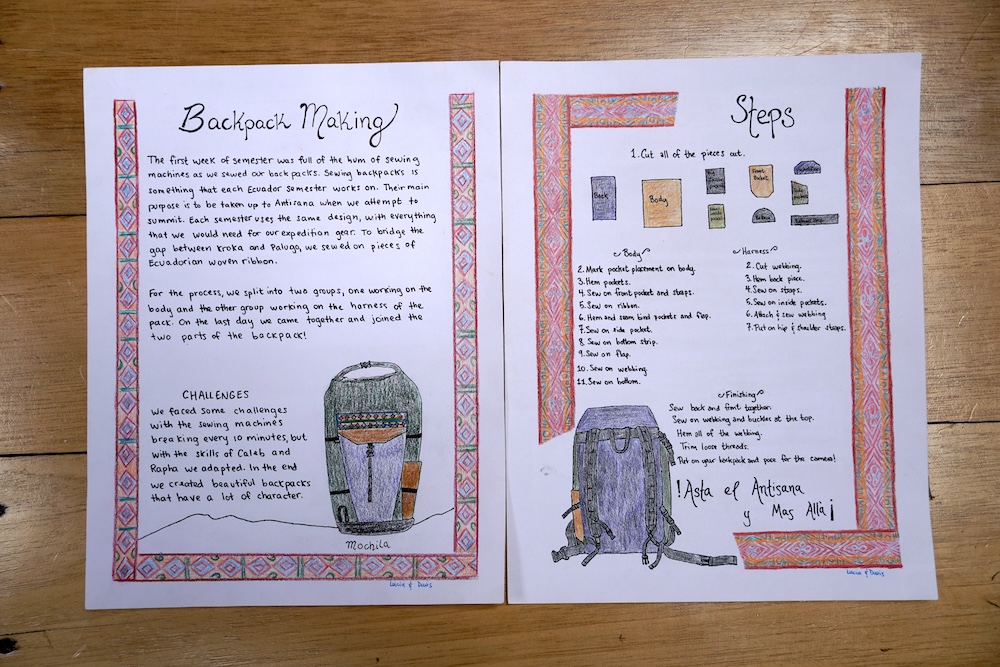 Backpack Making
The first week of semester was full of the hum of sewing
machines as we sewed our backpacks. Sewing backpacks is
something that each Ecuador Semester works on. Their main
purpose is to be taken up to Antisana when we attempt to
summit. Each semester uses the same design, with everything
that we would need for our expedition gear. To bridge the
gap between Kroka and Palugo, we sewed on pieces of
Ecuadorian woven ribbon.
For the process, we split into two groups, one working on the
body and the other group working on the harness of the
pack. On the last day we came together and joined the
two parts of the backpack!
CHALLENGES
We faced some challenges
with the sewing machines
breaking every 10 minutes, but
with the skills of Caleb and
Rapha we adapted. In the end
we created beautiful backpacks
that have a lot of character.
Mochila
Steps
1. Cut all of the pieces out.
Back
Body
Front
Pocket
Bottom
Body
2. Mark pocket placement on body.
3. Hem pockets.
4. Sew on front pocket and straps.
5. Sew on ribbon.
6. Hem and seam bind pockets and flap.
7. Sew on side pocket.
8. Sew on bottom strip.
9. Sew on flap.
10. Sew on webbing.
11. Sew on bottom.
Harness
2. Cut webbing.
3. Hem back piece.
4. Sew on straps.
5. Sew on inside pockets.
6. Attach & sew webbing
7. Put on hip & shoulder straps.
Finishing
Sew back and front together.
Sew on webbing and buckles at the top.
Hem all of the webbing.
Trim loose threads.
Put on your backpack and pose for the camera!
!Asta el Antisana
y Mas Allá¡